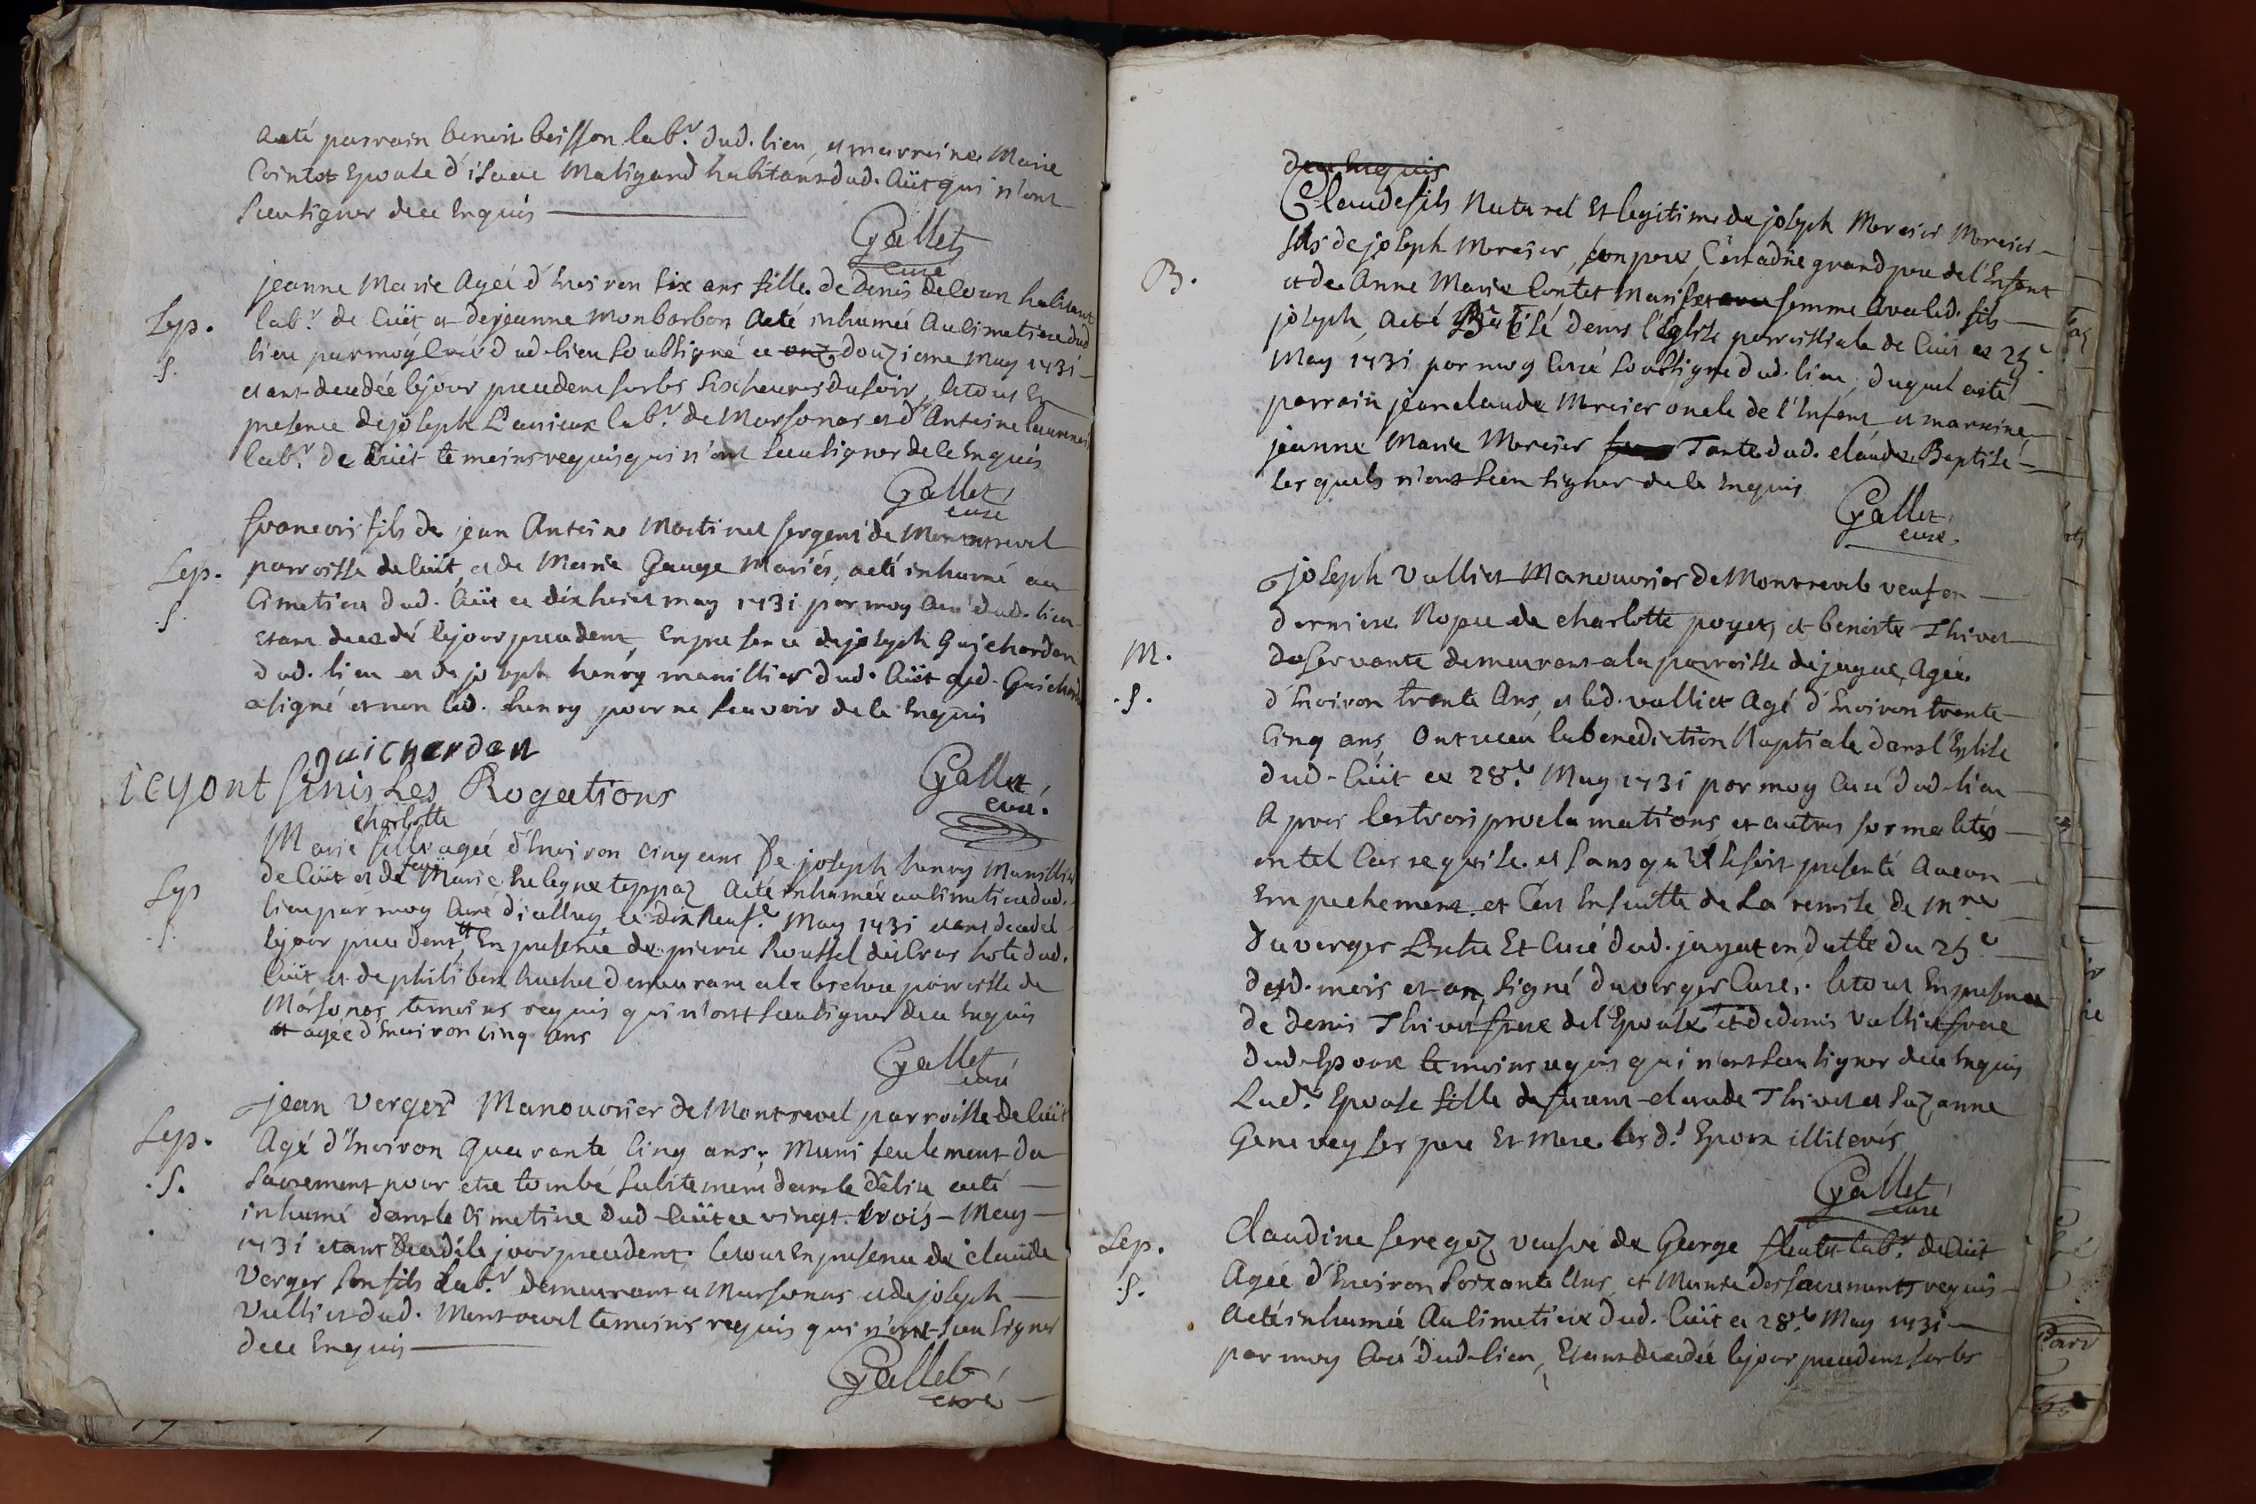 acté parrain benoit boisson lab.r dud. lieu, et marraine Marie
Cointet Epouse d'isaac Matigand habitants dud. Cüit qui n'ont
sceu signer de ce Enquis
Gallet
curé
jeanne Marie Agée d'Environ six ans fille de denis deloun habitant
Sep. lab.r de Cüit et de jeanne Monbarbon Aeté inhumée Au Cimetiere dud
lieu par moy Curé dud-lieu soubsigné ce onz douzieme May 1731
S. etant decedée le jour precedent sur les six heures du soir, le tout En
presence de joseph Lauieux lab.r de Marsonas et d'Antoine
lab.r de Cüit temoins requis qui n'ont sceu signer de ce Enquis
Gallet
curé
francois fils de jean Antoine Martinet sergent de Montrevel
Sep. parroisse de Cüit, et de Marie Gauge Mariés, aeté inhumé au
Cimetiere dud. Cüit ce dixhuict may 1731 par moy Curé dud. lieu
S. Etant decedé le jour precedent, En presence de joseph Guichardon
dud. lieu et de joseph henry manillier dud. Cüit led. Guichardon
a signé et non led. henry pour ne sçavoir de ce Enquis
guichardon
Gallet
curé.
icy ont finis Les Rogations
charlotte
Marie fille agée d'Environ cinq ans De joseph henry Manillier
Sep de Cüit et de feüe Marie helegne teppaz Aeté inhumée au Cimetiere dud.
lieu par moy Curé d'icelluy ce dixneuf.e May 1731 etant decedée
S. le jour precedent tt En presence de pierre Roussel dit Cras hote dud.
Cüit et de philibert huchet demeurant a la bechere parroisse de
Marsonas, temoins requis qui n'ont sceu signer de ce Enquis
tt agée d'Environ cinq ans
Gallet
curé
jean Verger Manouvrier de Montrevel parroisse de Cüit
Sep. Agé d'Environ Quarante Cinq ans, Muni seulement du
S. Sacrement pour etre tombé subitement dans le delire aeté
inhumé dans le Cimetiere dud-Cüit ce vingt-trois May
1731 etant Decedé le jour precedent, le tout En presence de claude
Verger son fils Lab.r demeurant a Marsonas et de joseph
Vulliet dud. Montrevel temoins requis qui n'ont sceu signer
de ce Enquis
Gallet
curé
de ce Enquis
Claude fils Naturel Et legitime de joseph Mercier Mercier
fils de joseph Mercier, son pere, C'est a dire grand pere de l'Enfant
B. et de Anne Marie Contet Maris et femme Avec led. fils
joseph, aeté Batisé dans l'Eglise parroissiale de Cüit ce 25e
May 1731 par moy Curé Soubsigné dud. lieu, duquel aeté
parrain jean claude Mercier oncle de l'Enfant, et marraine
jeanne Marie Mercier Tante dud. claude Baptisé
lesquels n'ont sceu signer de ce Enquis
Gallet
curé.
joseph Vulliet Manouvrier de Montrevel veuf en
dernieres Nopces de charlotte poyet, et benoite Thivet
M. de servante demeurant a la parroisse de jayat, Agée
S. d'Environ trente Ans, et led. vulliet Agé d'Environ trente
Cinq ans, Ont receu la benediction Nuptiale dans l'Eglise
dud-Cüit ce 28.e May 1731 par moy Curé dud-lieu
Apres les trois proclamations et autres formalités
en tel Cas requise. et sans qu'il se soit presenté Aucun
Empechement, et C'est Ensuitte de La remise de M.re
Duverger Pretre Et Curé dud. jayat en datte du 25.e
desd. mois et an, signé duverger Curé,. le tout En presence
de denis Thivet frere del'Epouse et de denis Vulliet frere
dud-Epoux temoins requis qui n'ont sceu signer de ce Enquis
Lad.e Epouse fille de furent claude Thivet et Suzanne
Genevey ses pere Et Mere. les d.s Epoux illiterés
Gallet
curé
Sep. Claudine feregoz veufve de George fleuta lab.r de Cüit
S. Agée d'Environ Soixante Ans, et Munie des sacrements requis
aeté inhumée Au Cimetiere dud. Cüit ce 28.e May 1731
par moy Curé dud-lieu, Etant decedée le jour precedent sur les